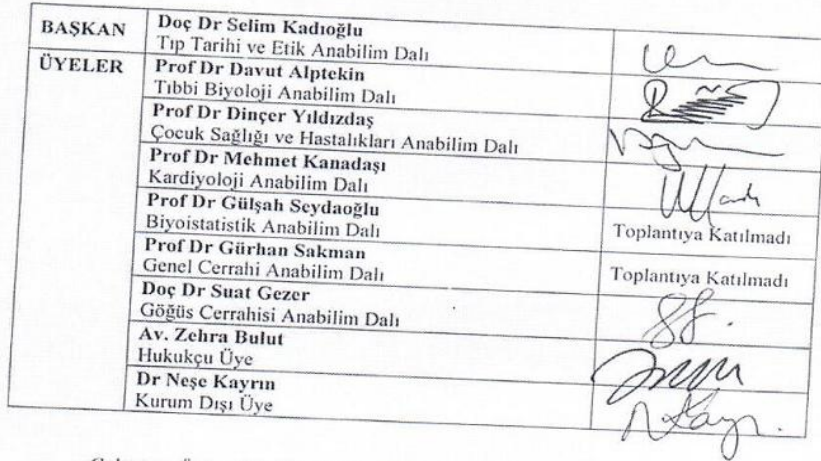 BAŞKAN
Doç Dr Selim Kadıoğlu
Tıp Tarihi ve Etik Anabilim Dalı
ÜYELER
Prof Dr Davut Alptekin
Tıbbi Biyoloji Anabilim Dalı
Prof Dr Dinçer Yıldızdaş
Çocuk Sağlığı ve Hastalıkları Anabilim Dalı
Prof Dr Mehmet Kanadaşı
Kardiyoloji Anabilim Dalı
Prof Dr Gülşah Seydaoğlu
Biyoistatistik Anabilim Dalı
Toplantıya Katılmadı
Prof Dr Gürhan Sakman
Genel Cerrahi Anabilim Dalı
Toplantıya Katılmadı
Doç Dr Suat Gezer
Göğüs Cerrahisi Anabilim Dalı
Av. Zehra Bulut
Hukukçu Üye
Dr Neşe Kayrın
Kurum Dışı Üye